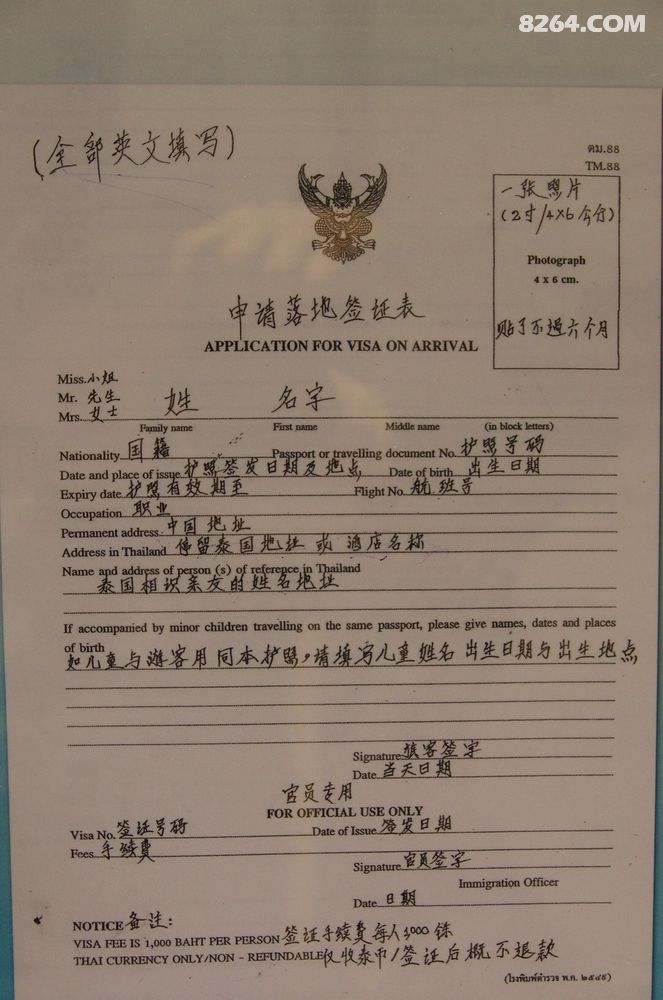 8264.COM
(全部英文填写)
ตม.88
TM.88
一张照片
(2寸/4X6公分)
Photograph
4 x 6 cm.
贴了不过六个月
申请落地签证表
APPLICATION FOR VISA ON ARRIVAL
Miss.小姐
Mr. 先生
Mrs. 女士 姓 名字
Family name First name Middle name (in block letters)
Nationality 国籍 Passport or travelling document No. 护照号码
Date and place of issue 护照签发日期及地点 Date of birth 出生日期
Expiry date 护照有效期至 Flight No. 航班号
Occupation 职业
Permanent address 中国地址
Address in Thailand 停留泰国地址 或 酒店名称
Name and address of person (s) of reference in Thailand
泰国相识亲友的姓名地址
If accompanied by minor children travelling on the same passport, please give names, dates and places
of birth
如儿童与游客用同本护照,请填写儿童姓名 出生日期与出生地点
Signature 旅客签字
Date 当天日期
官员专用
FOR OFFICIAL USE ONLY
Visa No. 签证号码 Date of Issue 签发日期
Fees 手续費
Signature 官员签字
Immigration Officer
Date 日期
NOTICE 备注:
VISA FEE IS 1,000 BAHT PER PERSON 签证手续費每人1,000 铢
THAI CURRENCY ONLY/NON - REFUNDABLE 仅收泰币/签证后概不退款
(โรงพิมพ์ตำรวจ พ.ศ. ๒๕๔๕)